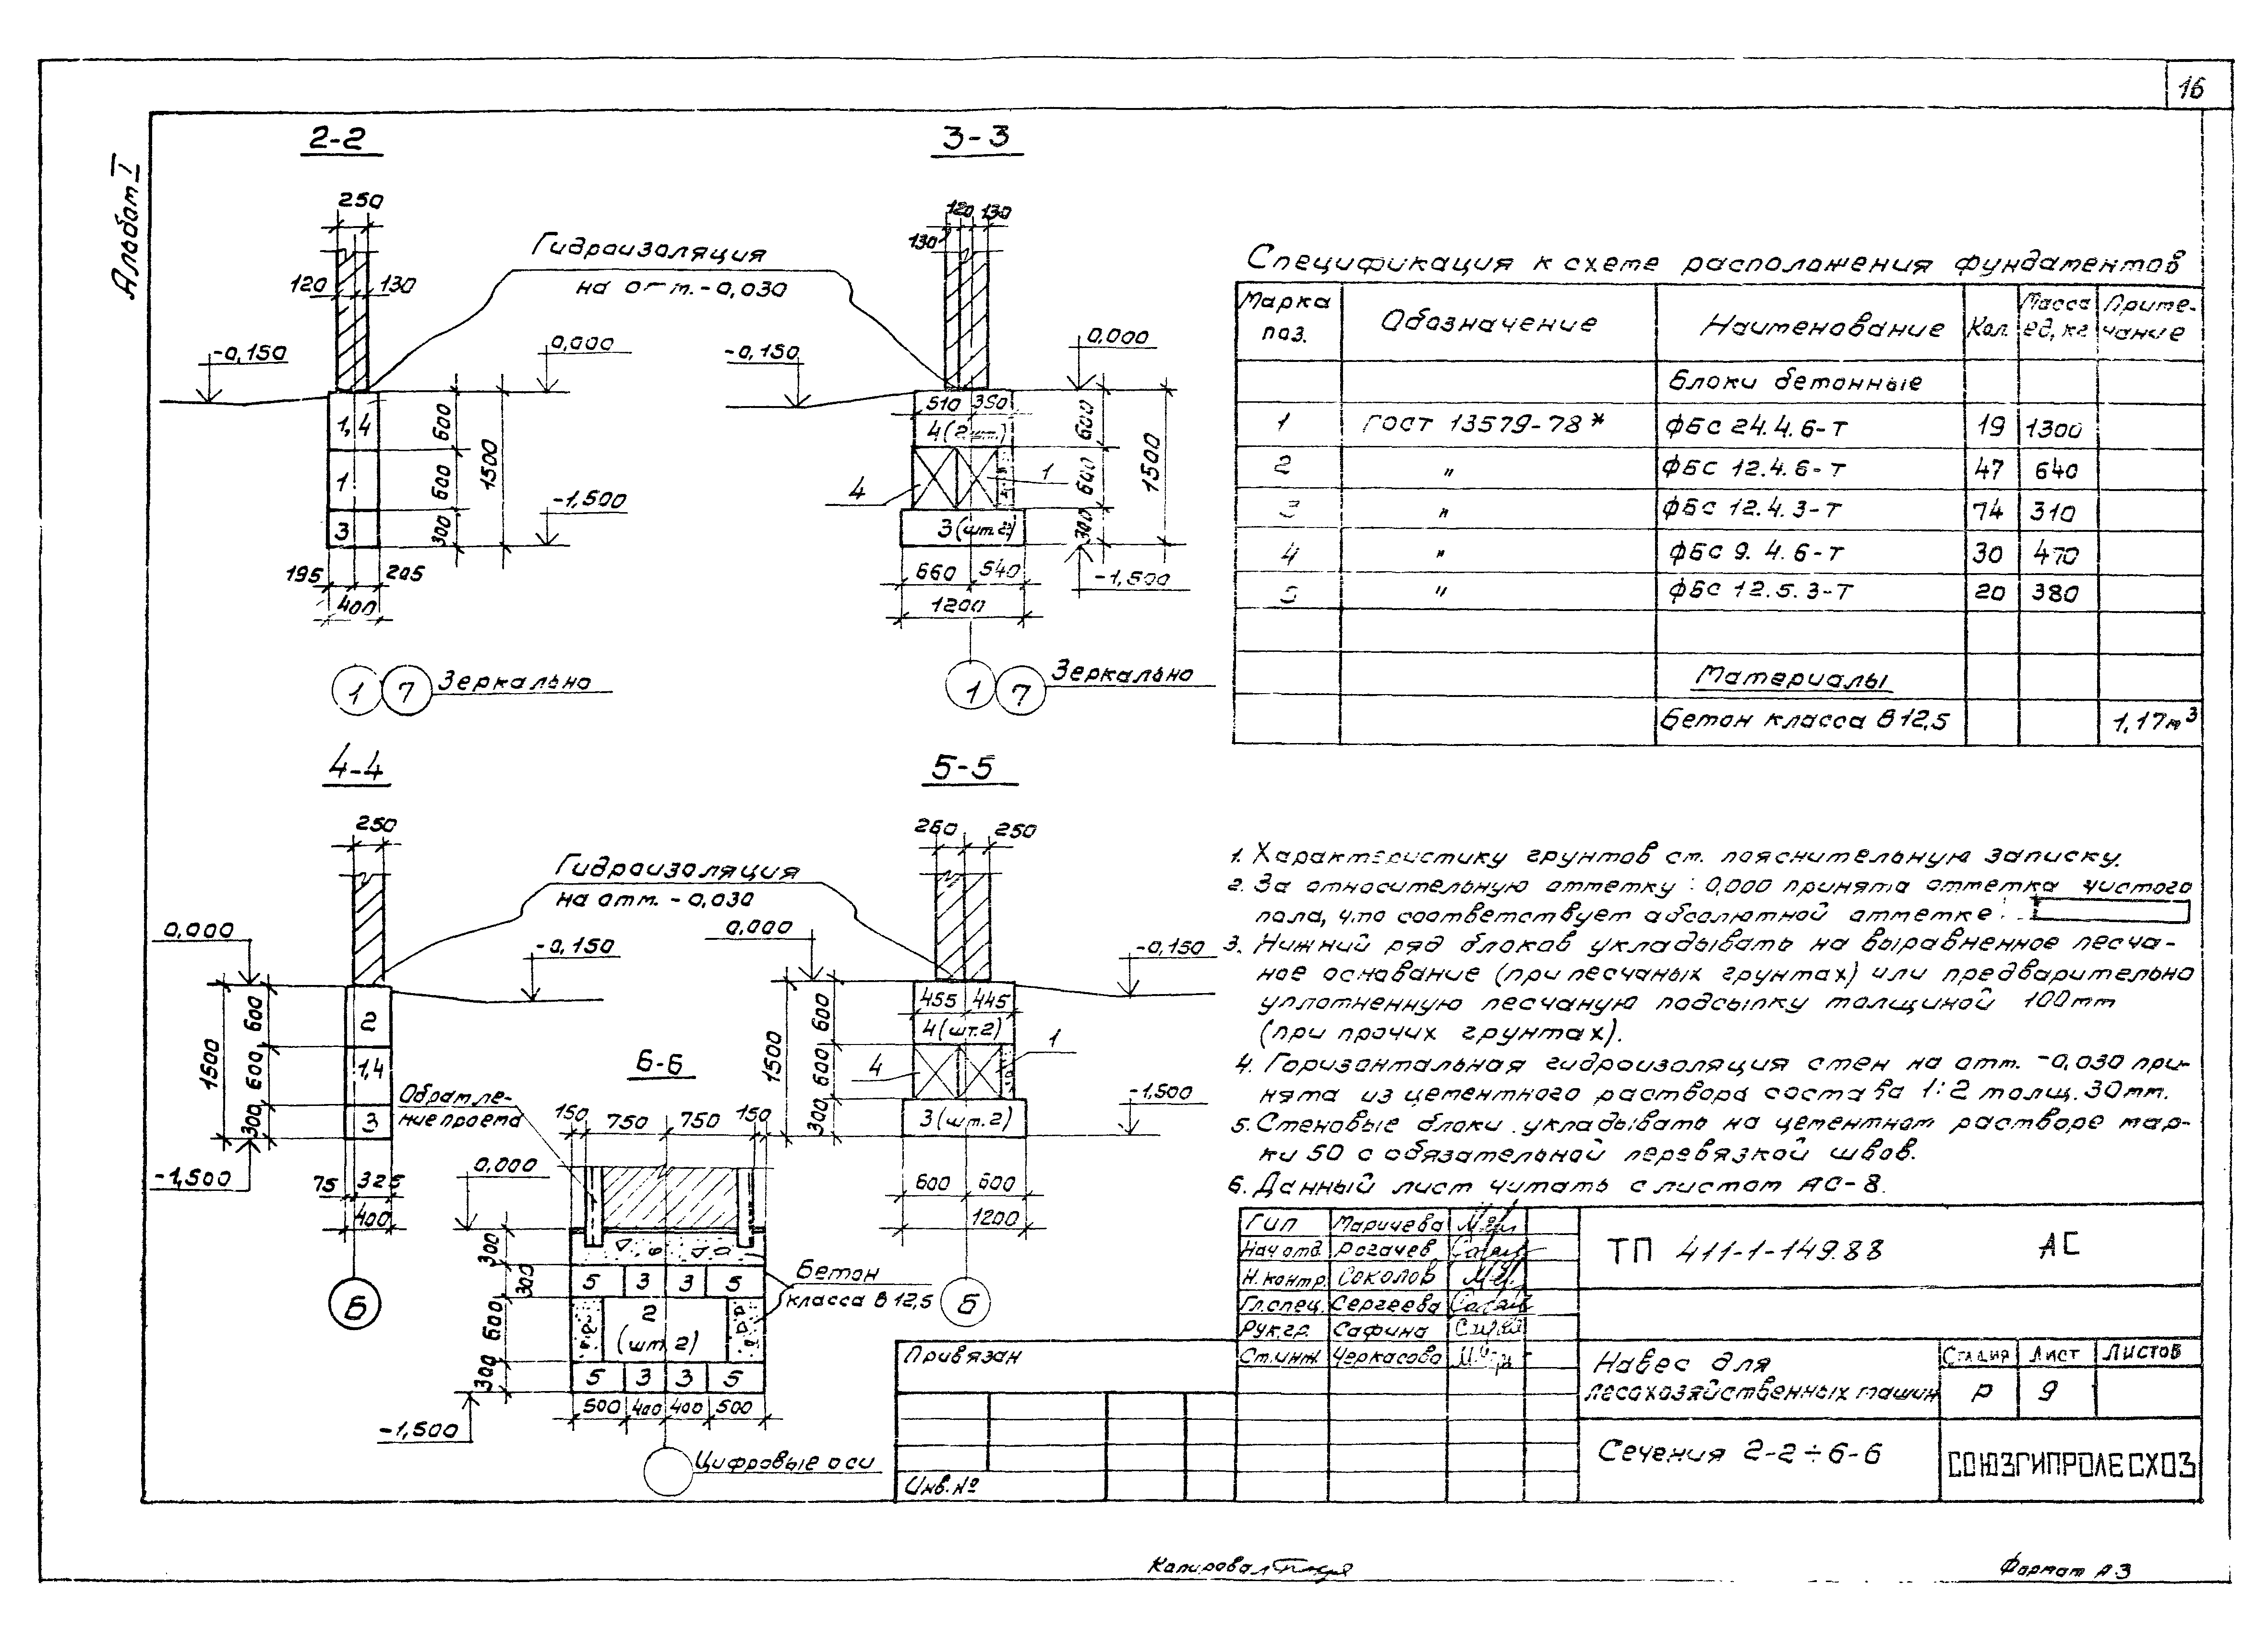 16
Альбом I
2-2
250
120 130
Гидроизоляция
на отм. -0,030
-0,150
0,000
1,4
1
3
600
600
300
1500
-1,500
195 205
400
1 7 Зеркально
3-3
120 130
130
-0,150
0,000
510 350
4 (2 шт.)
4
1
3 (шт. 2)
600
600
300
1500
660 540
1200
-1,500
1 7 Зеркально
Спецификация к схеме расположения фундаментов
Марка поз. Обозначение Наименование Кол. Масса ед, кг Приме-чание
Блоки бетонные
1 ГОСТ 13579-78* ФБС 24.4.6-Т 19 1300
2 " ФБС 12.4.6-Т 47 640
3 " ФБС 12.4.3-Т 74 310
4 " ФБС 9.4.6-Т 30 470
5 " ФБС 12.5.3-Т 20 380
Материалы
Бетон класса В12,5 1,17м³
4-4
250
Гидроизоляция
на отм. -0,030
0,000
-0,150
2
1,4
3
600
600
300
1500
-1,500
75 325
400
Б
5-5
250 250
0,000
-0,150
455 445
4 (шт. 2)
4
1
3 (шт. 2)
600
600
300
1500
-1,500
600 600
1200
Б
6-6
Обрамле-
ние проема
150 750 750 150
0,000
300
300
600
300
5 3 3 5
2
(шт. 2)
5 3 3 5
Бетон
класса В12,5
500 400 400 500
-1,500
Цифровые оси
1. Характеристику грунтов см. пояснительную записку.
2. За относительную отметку 0,000 принята отметка чистого
пола, что соответствует абсолютной отметке
3. Нижний ряд блоков укладывать на выравненное песча-
ное основание (при песчаных грунтах) или предварительно
уплотненную песчаную подсыпку толщиной 100мм
(при прочих грунтах).
4. Горизонтальная гидроизоляция стен на отм. -0,030 при-
нята из цементного раствора состава 1:2 толщ. 30мм.
5. Стеновые блоки укладывать на цементном растворе мар-
ки 50 с обязательной перевязкой швов.
6. Данный лист читать с листом АС-8.
Гип Маричева
Нач отд. Рогачев
Н.контр. Соколов
Гл.спец. Сергеева
Рук.гр. Сафина
Ст.инж. Черкасова
ТП 411-1-149.88 АС
Навес для
лесохозяйственных машин
Стадия Лист Листов
Р 9
Сечения 2-2÷6-6
СОЮЗГИПРОЛЕСХОЗ
Привязан
Инв. №
Копировал
Формат А3